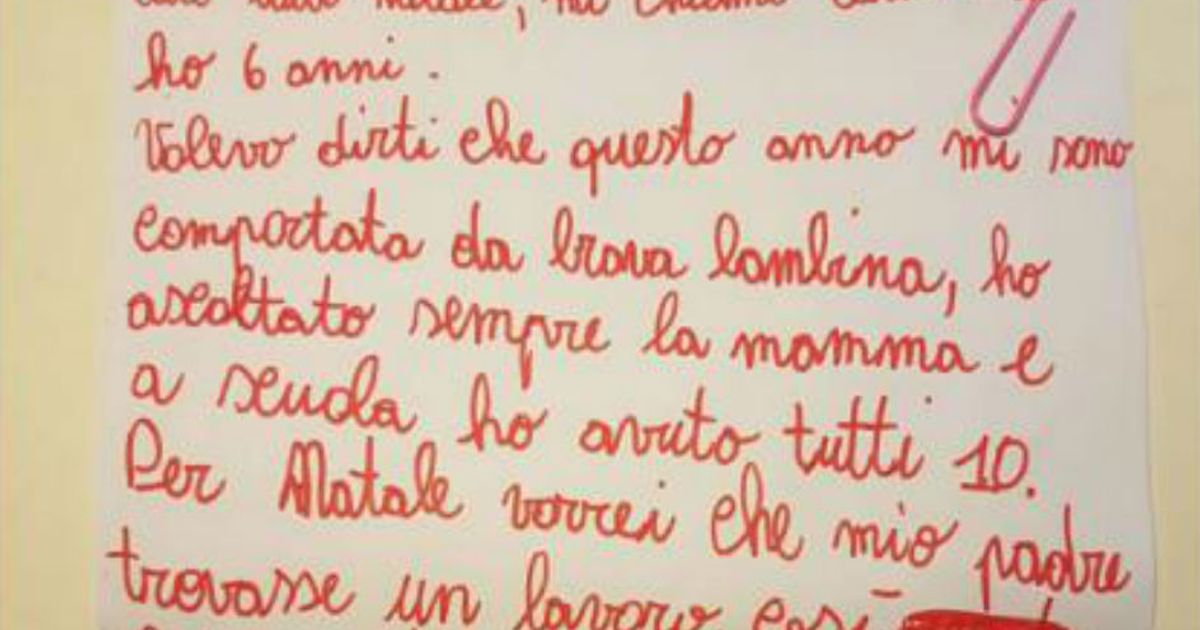 mi chiamo
ho 6 anni.
Volevo dirti che questo anno mi sono
comportata da brava bambina, ho
ascoltato sempre la mamma e
a scuola ho avuto tutti 10.
Per Natale vorrei che mio padre
trovasse un lavoro così